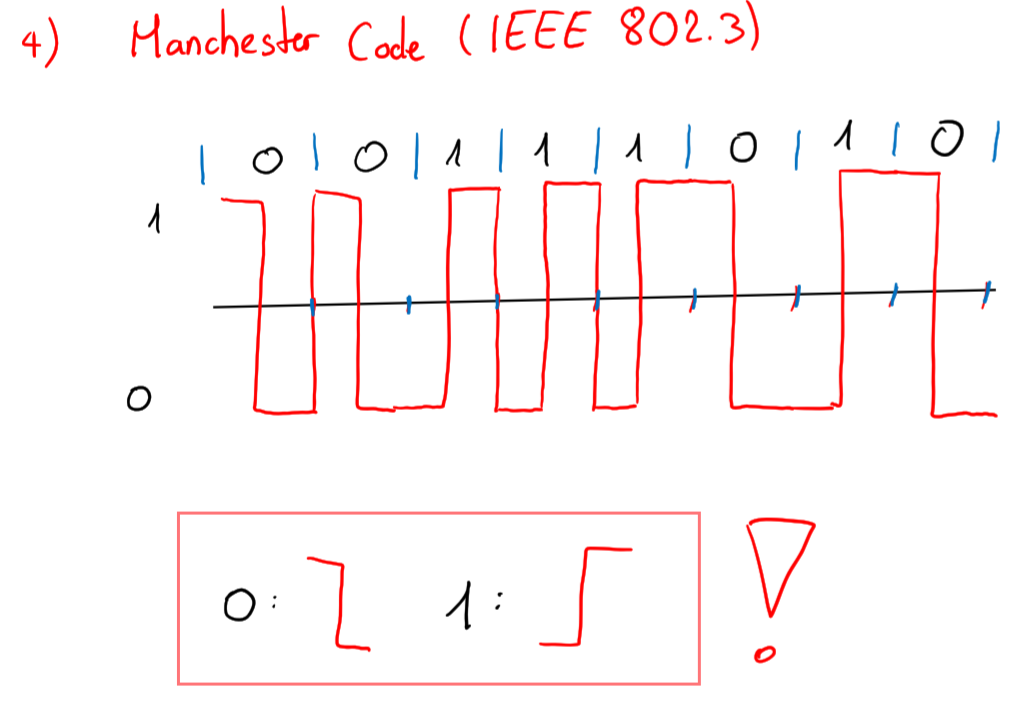 4) Manchester Code (IEEE 802.3)
| 0 | 0 | 1 | 1 | 1 | 0 | 1 | 0 |
1
0
0: 1: !